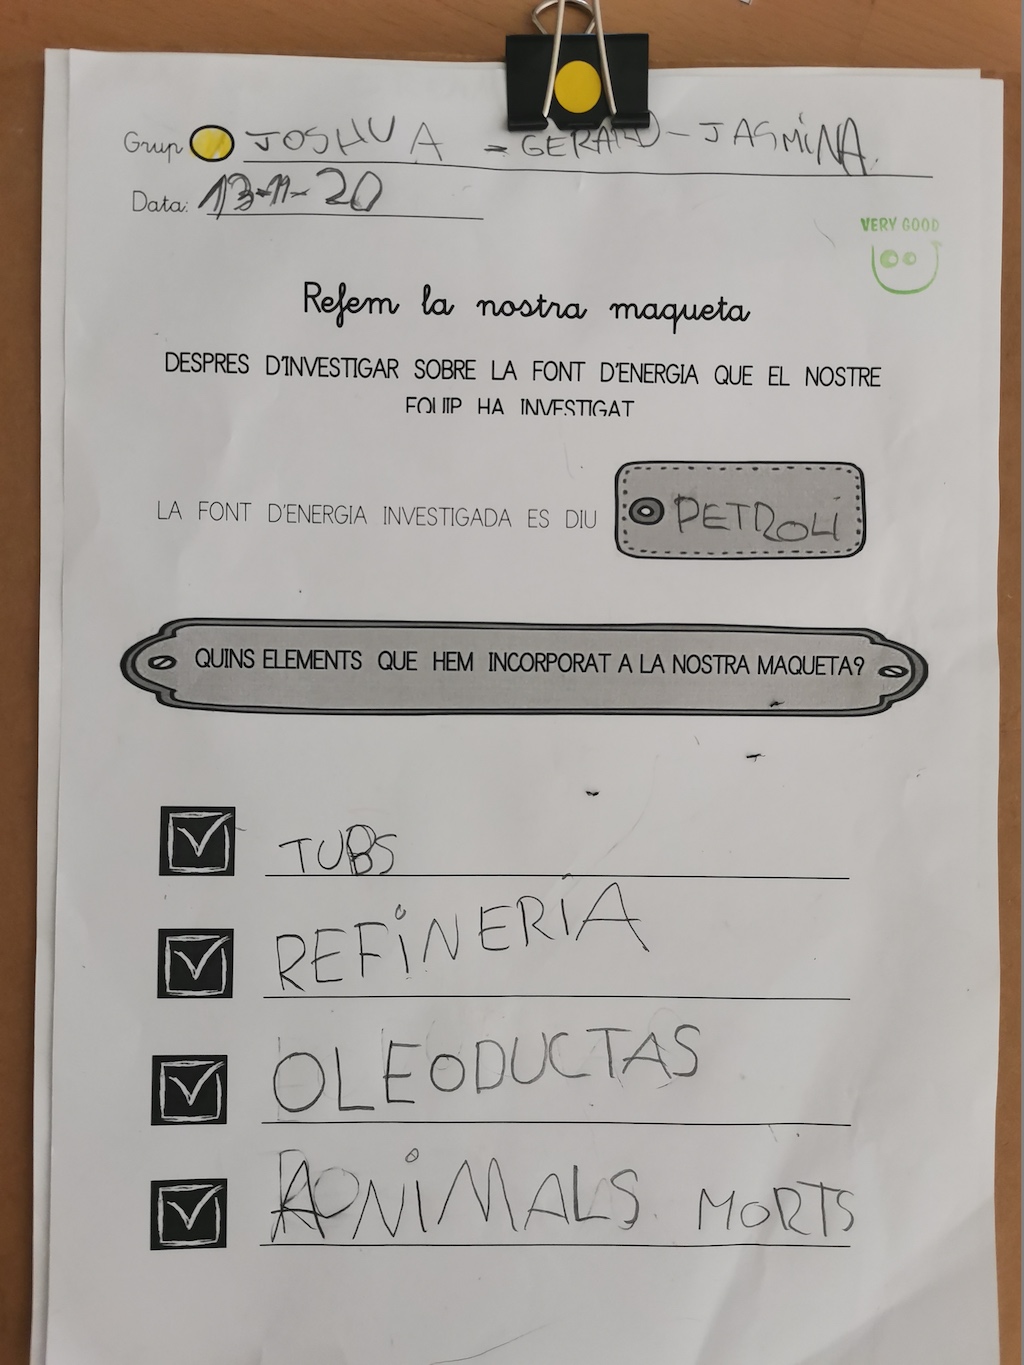 Grup JOSHUA - GERARD - JASMINA.
Data: 13-11-20
VERY GOOD
Refem la nostra maqueta
DESPRES D'INVESTIGAR SOBRE LA FONT D'ENERGIA QUE EL NOSTRE
EQUIP HA INVESTIGAT
LA FONT D'ENERGIA INVESTIGADA ES DIU PETROLI
QUINS ELEMENTS QUE HEM INCORPORAT A LA NOSTRA MAQUETA?
TUBS
REFINERIA
OLEODUCTAS
ANIMALS MORTS